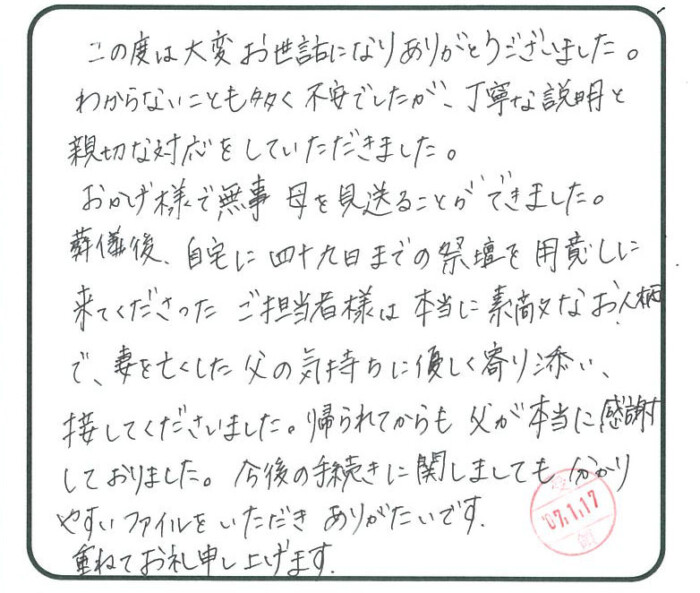 この度は大変お世話になりありがとうございました。
わからないことも多く不安でしたが、丁寧な説明と
親切な対応をしていただきました。
おかげ様で無事 母を見送ることができました。
葬儀後、自宅に四十九日までの祭壇を用意しに
来てくださった ご担当者様は本当に素敵なお人柄
で、妻を亡くした父の気持ちに優しく寄り添い、
接してくださいました。帰られてからも父が本当に感謝
しておりました。今後の手続きに関しましても分かり
やすいファイルをいただき ありがたいです.
重ねてお礼申し上げます.
'07.1.17